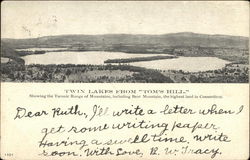 TWIN LAKES FROM "TOM'S HILL."
Showing the Taconic Range of Mountains, including Bear Mountain, the highest land in Connecticut.
Dear Ruth, I'll write a letter when I
get some writing paper.
Having a swell time, write
soon. With Love, R. W. Tracy.